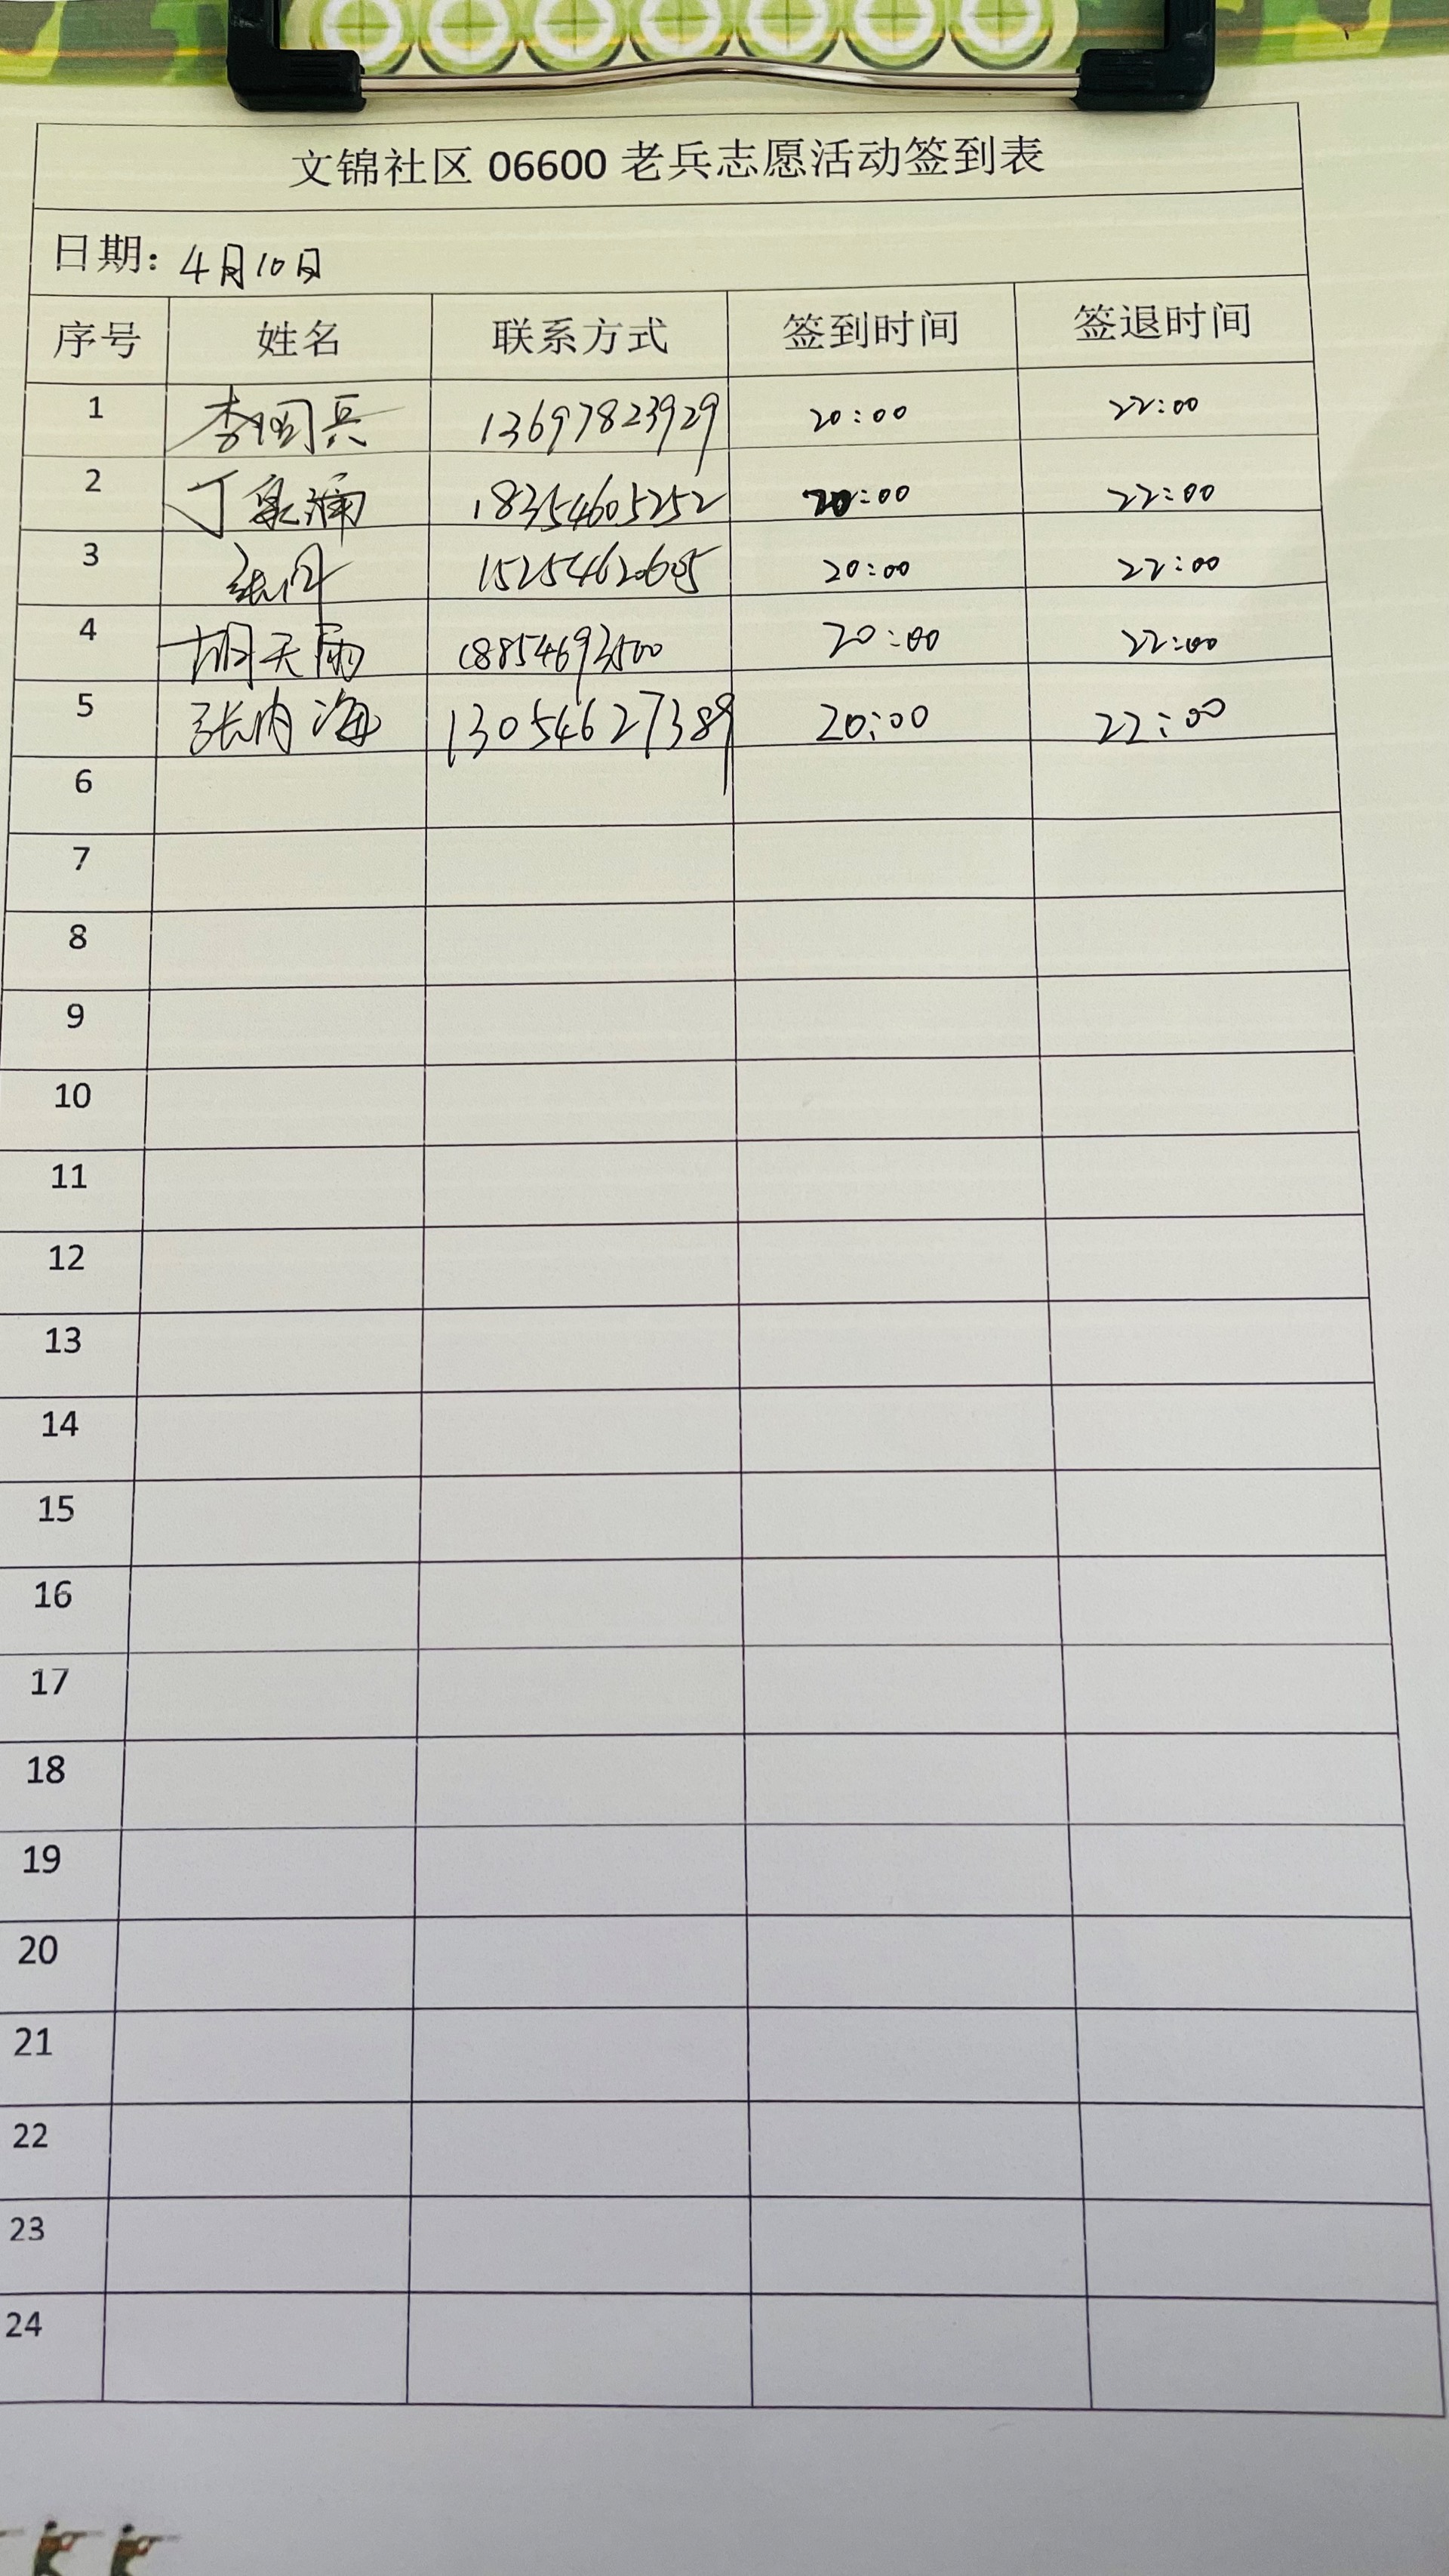 文锦社区 06600 老兵志愿活动签到表
日期: 4月10日
序号 姓名 联系方式 签到时间 签退时间
1 李国兵 13697823929 20:00 22:00
2 丁 18354605252 20:00 22:00
3 张丹 15254620605 20:00 22:00
4 胡天雨 18854693500 20:00 22:00
5 张内海 13054627389 20:00 22:00
6
7
8
9
10
11
12
13
14
15
16
17
18
19
20
21
22
23
24